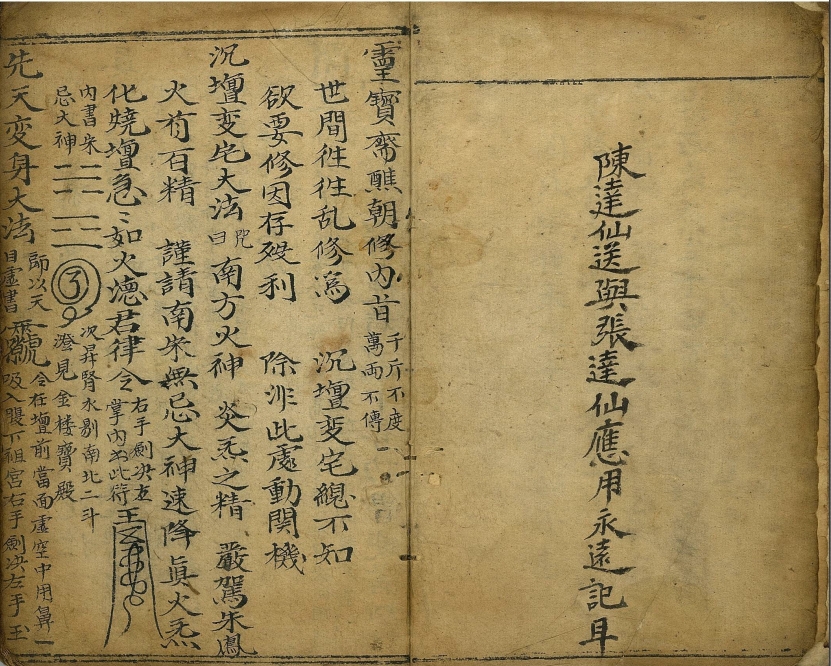 陳達仙送與張達仙應用永遠記耳
靈寶齋醮朝修內旨 千斤不度 萬兩不傳
世間徃徃乱修爲 沉壇变宅緫不知
欲要修因存殁利 除非此處動関機
沉壇变宅大法 咒曰 南方火神 炎炁之精 嚴駕朱鳳
火符百精 謹請南朱無忌大神速降真火炁
化燒壇急〻如火德君律令 右手劍决左 掌內书此符 王
內書朱 忌大神 了 次昇腎水剔南北二斗 澄見金楼寶殿
先天变身大法 師以天 目虛書 號 令在壇前當面虛空中用鼻一 吸入腹下祖宮右手劍决左手玉